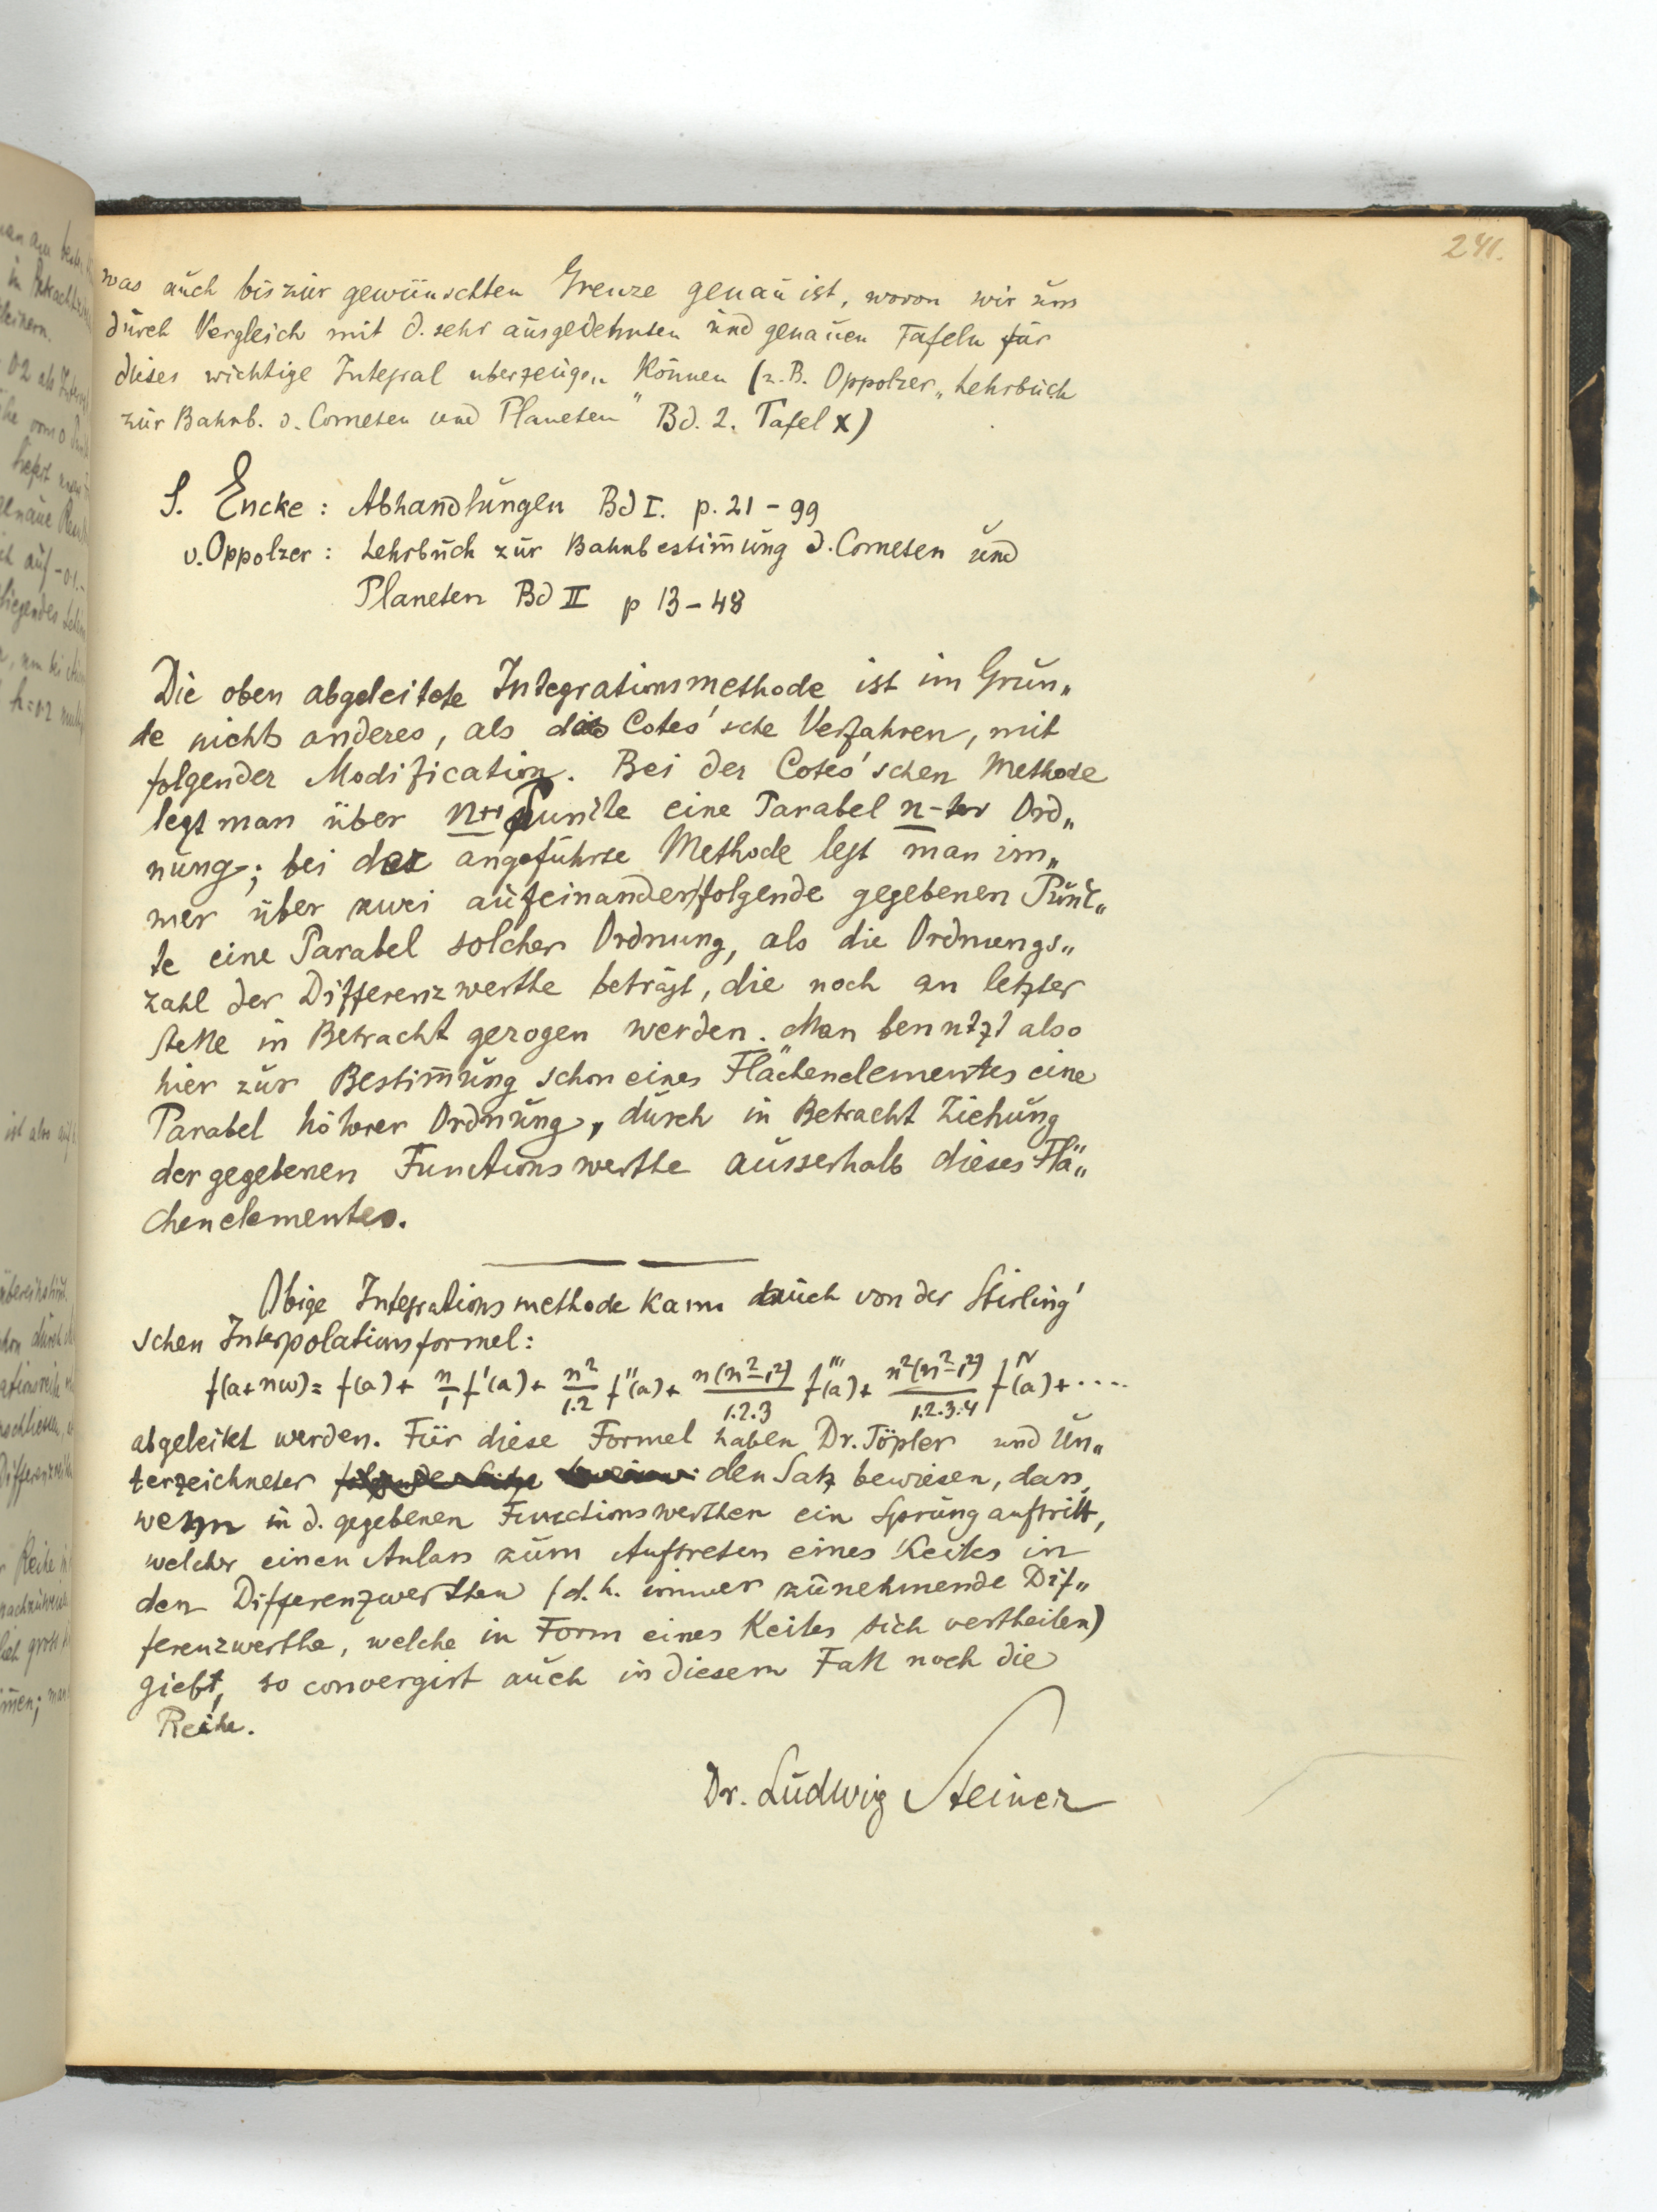 241.
was auch bis zur gewünschten Grenze genau ist, wovon wir uns
durch Vergleich mit d. sehr ausgedehnten und genauen Tafeln für
dieses wichtige Integral uberzeugen können (z.B. Oppolzer „Lehrbuch
zur Bahnb. d. Cometen und Planeten" Bd. 2. Tafel X)
S. Encke: Abhandlungen Bd I. p. 21 – 99
v. Oppolzer: Lehrbuch zur Bahnbestim̄ung d. Cometen und
Planeten Bd II p 13 – 48
Die oben abgeleitete Integrationsmethode ist im Grun„
de nichts anderes, als das Cotes'sche Verfahren, mit
folgender Modification. Bei der Cotes'schen Methode
legt man über n+1 Puncte eine Parabel n-ter Ord„
nung; bei der angeführte Methode legt man im„
mer über zwei aufeinanderfolgende gegebenen Punc„
te eine Parabel solcher Ordnung, als die Ordnungs„
zahl der Differenzwerthe beträgt, die noch an letzter
Stelle in Betracht gezogen werden. Man benutzt also
hier zur Bestim̄ung schon eines Flächenelementes eine
Parabel höhrer Ordnung, durch in Betracht Ziehung
der gegebenen Functionswerthe ausserhalb dieses Flä„
chenelementes.
Obige Integrationsmethode kann auch von der Stirling'
schen Interpolationsformel:
f(a+nω) = f(a) + n/1 f'(a) + n²/1.2 f''(a) + n(n²–1²)/1.2.3 f'''(a) + n²(n²–1²)/1.2.3.4 f^IV(a) + ....
abgeleitet werden. Für diese Formel haben Dr. Töpler und Un„
terzeichneter den Satz bewiesen, dass,
wenn in d. gegebenen Functionswerthen ein Sprung auftritt,
welcher einen Anlass zum Auftreten eines Keiles in
den Differenzwerthen (d.h. immer zunehmende Dif„
ferenzwerthe, welche in Form eines Keiles sich vertheilen)
giebt, so convergirt auch in diesem Fall noch die
Reihe.
Dr. Ludwig Steiner